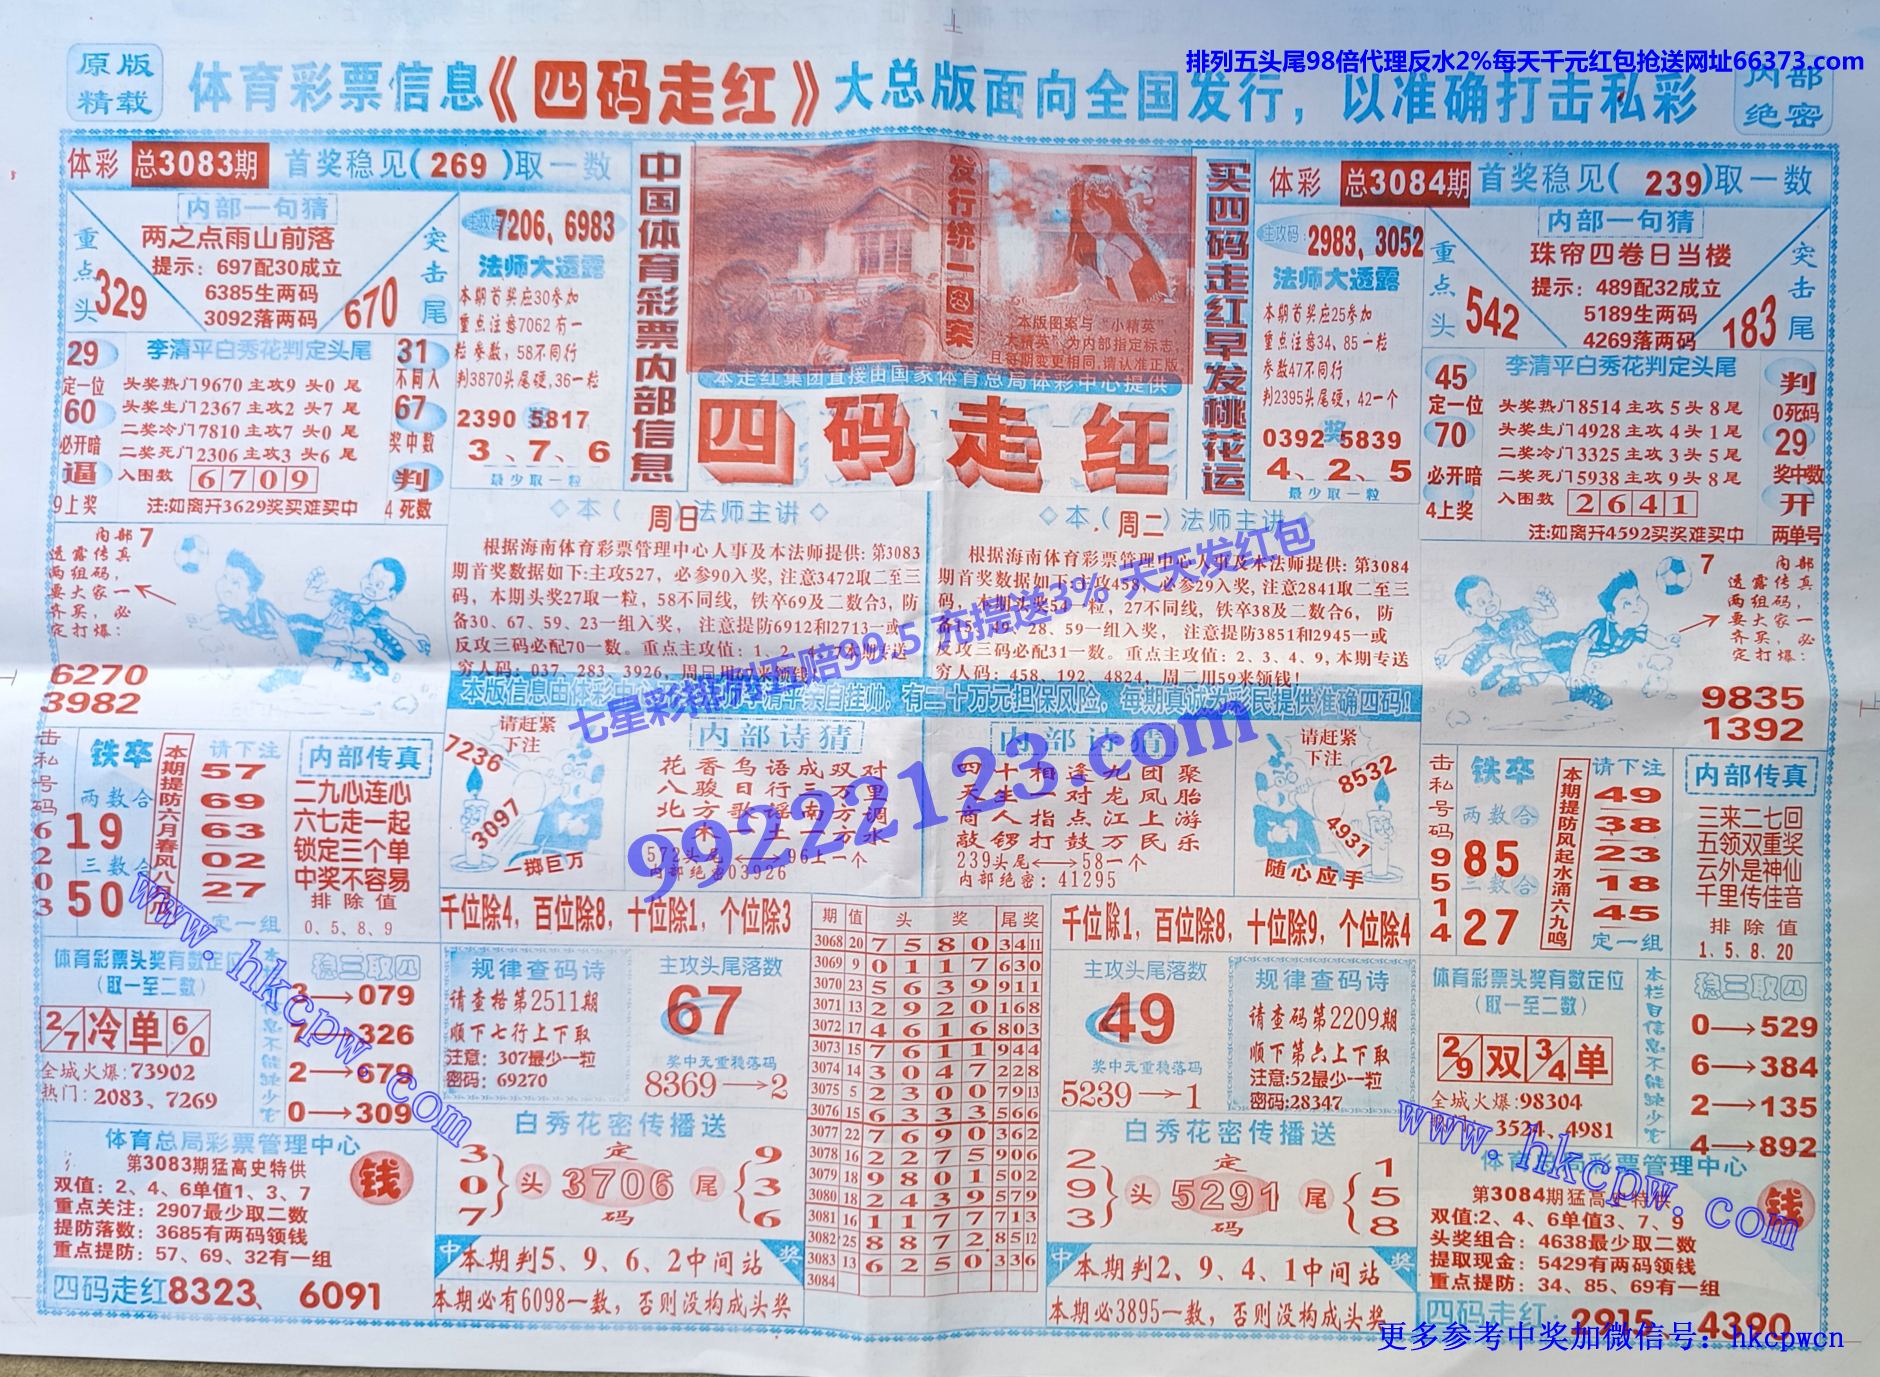 排列五头尾98倍代理反水2%每天千元红包抢送网址66373.com
原版
精载
体育彩票信息《四码走红》大总版面向全国发行，以准确打击私彩
内部
绝密
体彩 总3083期 首奖稳见(269)取一数
内部一句猜
两之点雨山前落
提示：697配30成立
6385生两码
3092落两码
重点头
329
突击尾
670
主攻码 7206、6983
法师大透露
本期首奖应30参加
重点注意7062有一
粒参数，58不同行
判3870头尾硬，36一粒
2390 5817
奖
3、7、6
最少取一粒
李清平白秀花判定头尾
29
定一位
60
必开暗
逼
9上奖
头奖热门9670主攻9 头0 尾
头奖生门2367主攻2 头7 尾
二奖冷门7810主攻7 头0 尾
二奖死门2306主攻3 头6 尾
入围数 6709
注:如离开3629奖买难买中
31
不同入
67
奖中数
判
4死数
中国体育彩票内部信息
发行统一图案
本版图案与“小精英”
“大精英”为内部指定标志，
且每期变更相同，请认准正版
本走红集团直接由国家体育总局体彩中心提供
四码走红
买四码走红早发桃花运
体彩 总3084期 首奖稳见(239)取一数
主攻码：2983、3052
法师大透露
本期首奖应25参加
重点注意34、85一粒
参数47不同行
判2395头尾硬，42一个
0392 5839
奖
4、2、5
最少取一粒
内部一句猜
珠帘四卷日当楼
提示：489配32成立
5189生两码
4269落两码
重点头
542
突击尾
183
李清平白秀花判定头尾
45
定一位
70
必开暗
4上奖
头奖热门8514主攻5头8尾
头奖生门4928主攻4头1尾
二奖冷门3325主攻3头5尾
二奖死门5938主攻9头8尾
入围数 2641
注:如离开4592买奖难买中
判
0死码
29
奖中数
开
两单号
内部7
透露传真
两组码，
要大家一
齐买，必
定打爆：
6270
3982
◇本（周日）法师主讲◇
根据海南体育彩票管理中心人事及本法师提供：第3083
期首奖数据如下:主攻527，必参90入奖，注意3472取二至三
码，本期头奖27取一粒，58不同线，铁卒69及二数合3，防
备30、67、59、23一组入奖， 注意提防6912和2713一或
反攻三码必配70一数。重点主攻值：1、2、4、7本期专送
穷人码：037、283、3926，周日用67来领钱！
◇本（周二）法师主讲◇
根据海南体育彩票管理中心人事及本法师提供：第3084
期首奖数据如下:主攻458，必参29入奖，注意2841取二至三
码，本期头奖54一粒，27不同线，铁卒38及二数合6，防
备15、49、28、59一组入奖， 注意提防3851和2945一或
反攻三码必配31一数。重点主攻值：2、3、4、9，本期专送
穷人码：458、192、4824，周二用59来领钱！
7 内部
透露传真
两组码，
要大家一
齐买，必
定打爆：
9835
1392
七星彩排列五赔99.5 充提送3% 天天发红包
99222123.com
击私号码
6203
铁卒
两数合
19
三数合
50
请下注
57
69
63
02
27
定一组
内部传真
二九心连心
六七走一起
锁定三个单
中奖不容易
排除值
0、5、8、9
请赶紧
下注
7236
3097
一掷巨万
内部诗猜
花香鸟语成双对
八骏日行三万里
北方歌谣南方调
一木一土一万水
内部绝密03926
内部诗猜
四十相逢九团聚
天生一对龙凤胎
商人指点江上游
敲锣打鼓万民乐
239头尾⟷58一个
内部绝密：41295
请赶紧
下注
8532
4931
随心应手
击私号码
9514
铁卒
两数合
85
三数合
27
本期提防风起水涌六九鸣
请下注
49
38
23
18
45
定一组
内部传真
三来二七回
五领双重奖
云外是神仙
千里传佳音
排除值
1、5、8、20
千位除4，百位除8，十位除1，个位除3
千位除1，百位除8，十位除9，个位除4
体育彩票头奖有数定位
（取一至二数）
2/7 冷 单 6/0
全城火爆：73902
热门：2083、7269
稳三取四
3→079
7→326
2→679
0→309
规律查码诗
请查格第2511期
顺下七行上下取
注意：307最少一粒
密码：69270
主攻头尾落数
67
奖中无重稳落码
8369→2
期 值 头奖 尾奖
3068 20 7580 3411
3069 9 0117 630
3070 23 5639 911
3071 13 2920 168
3072 17 4616 803
3073 15 7611 944
3074 14 3047 228
3075 5 2300 7913
3076 15 6333 566
3077 22 7690 362
3078 16 2275 906
3079 18 9801 502
3080 18 2439 579
3081 16 1177 713
3082 25 8872 8512
3083 13 6250 336
3084
主攻头尾落数
49
奖中无重稳落码
5239→1
规律查码诗
请查码第2209期
顺下第六上下取
注意:52最少一粒
密码:28347
体育彩票头奖有数定位
（取一至二数）
2/9 双 3/4 单
全城火爆:98304
3524、4981
本栏目信息不能缺少它
稳三取四
0→529
6→384
2→135
4→892
体育总局彩票管理中心
第3083期猛高史特供
双值：2、4、6单值1、3、7
重点关注：2907最少取二数
提防落数：3685有两码领钱
重点提防：57、69、32有一组
钱
四码走红8323、6091
白秀花密传播送
3
0
7
头
定
3706
码
尾
9
3
6
中 本期判5、9、6、2中间站 奖
本期必有6098一数，否则没构成头奖
白秀花密传播送
2
9
3
头
定
5291
码
尾
1
5
8
中 本期判2、9、4、1中间站 奖
本期必3895一数，否则没构成头奖
体育总局彩票管理中心
第3084期猛高史特供
双值:2、4、6单值3、7、9
头奖组合：4638最少取二数
提取现金：5429有两码领钱
重点提防：34、85、69有一组
钱
四码走红：2915、4390
www.hkcpw.com
www.hkcpw.com
更多参考中奖加微信号：hkcpwcn